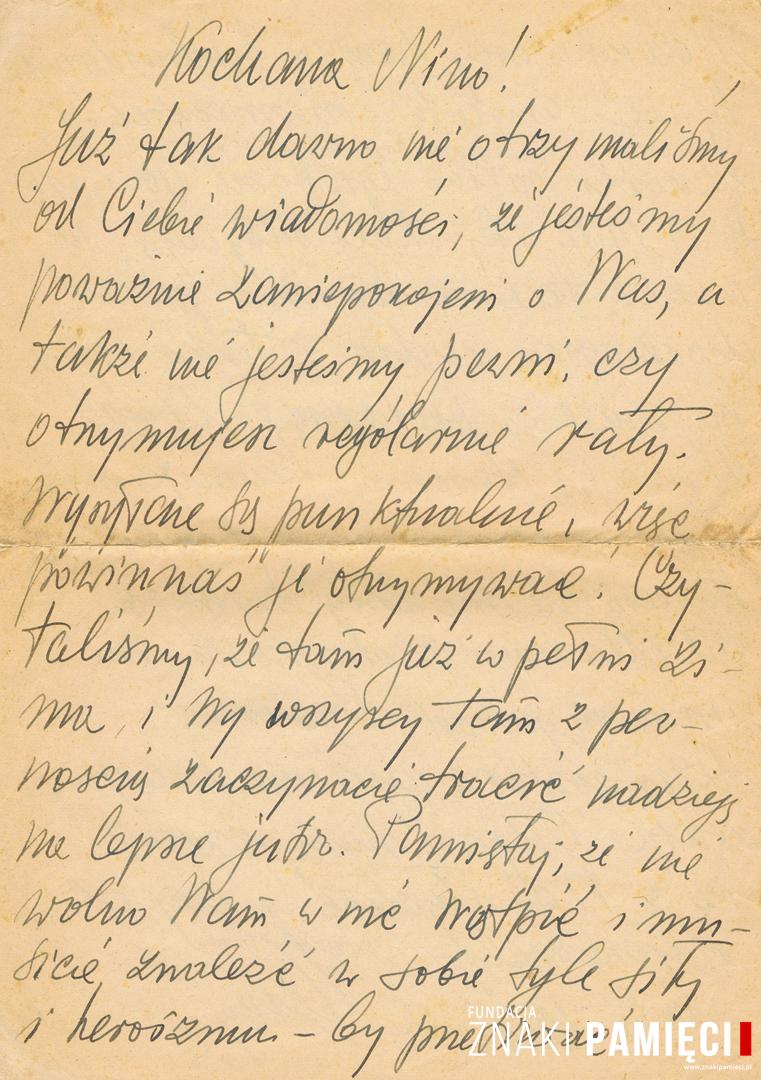 Kochana Nino!
Już tak dawno nie otrzymaliśmy
od Ciebie wiadomości, że jesteśmy
poważnie zaniepokojeni o Was, a
także nie jesteśmy pewni, czy
otrzymujesz rególarnie raty.
Wysyłane są punktualnie, więc
powinnaś je otrzymywać. Czy-
taliśmy, że tam już w pełni zi-
ma, i Wy wszyscy tam z pew-
nością zaczynacie tracić nadzieję
na lepsze jutro. Pamiętaj, że nie
wolno Wam w nic wątpić i mu-
sicie znaleźć w sobie tyle siły
i heroizmu – by przetrwać
FUNDACJA
ZNAKI PAMIĘCI
www.znakipamieci.pl